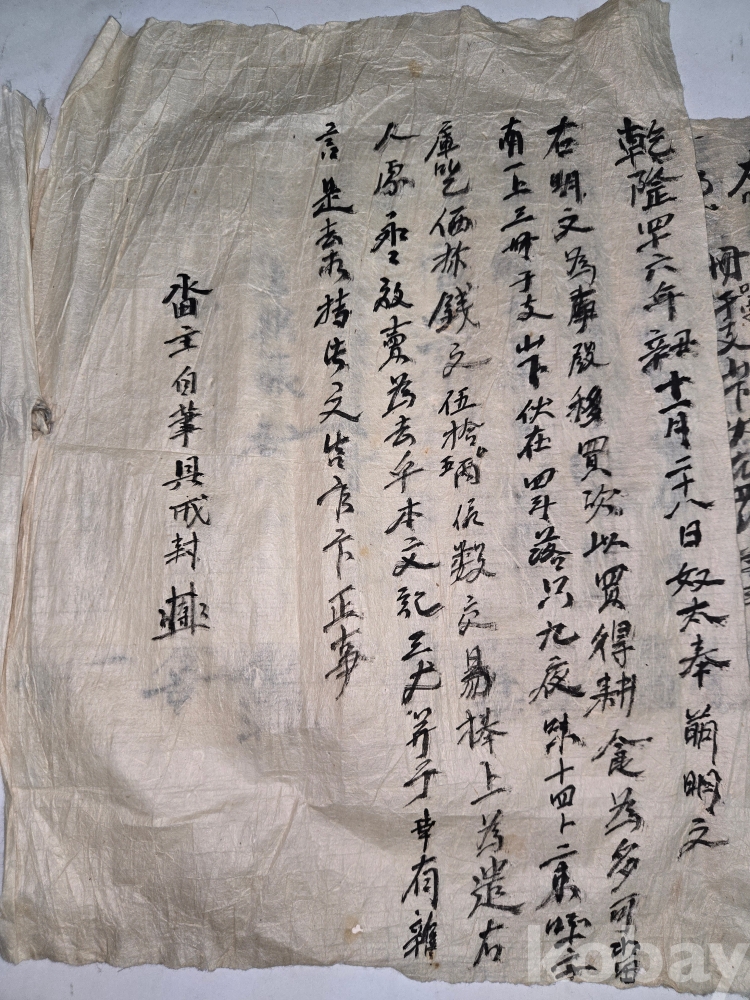 乾隆四十六年辛丑十一月二十八日奴太奉前明文
右明文爲事段移買次以買得耕食爲多可畓
南一上三冊于支山下伏在四斗落只九夜味十四卜二束
庫乙價折錢文伍拾兩依數交易捧上爲遣右
人處永永放賣爲去乎本文記三丈幷予幸有雜
言是去等持此文告官卞正事
畓主自筆具戒封
kobay